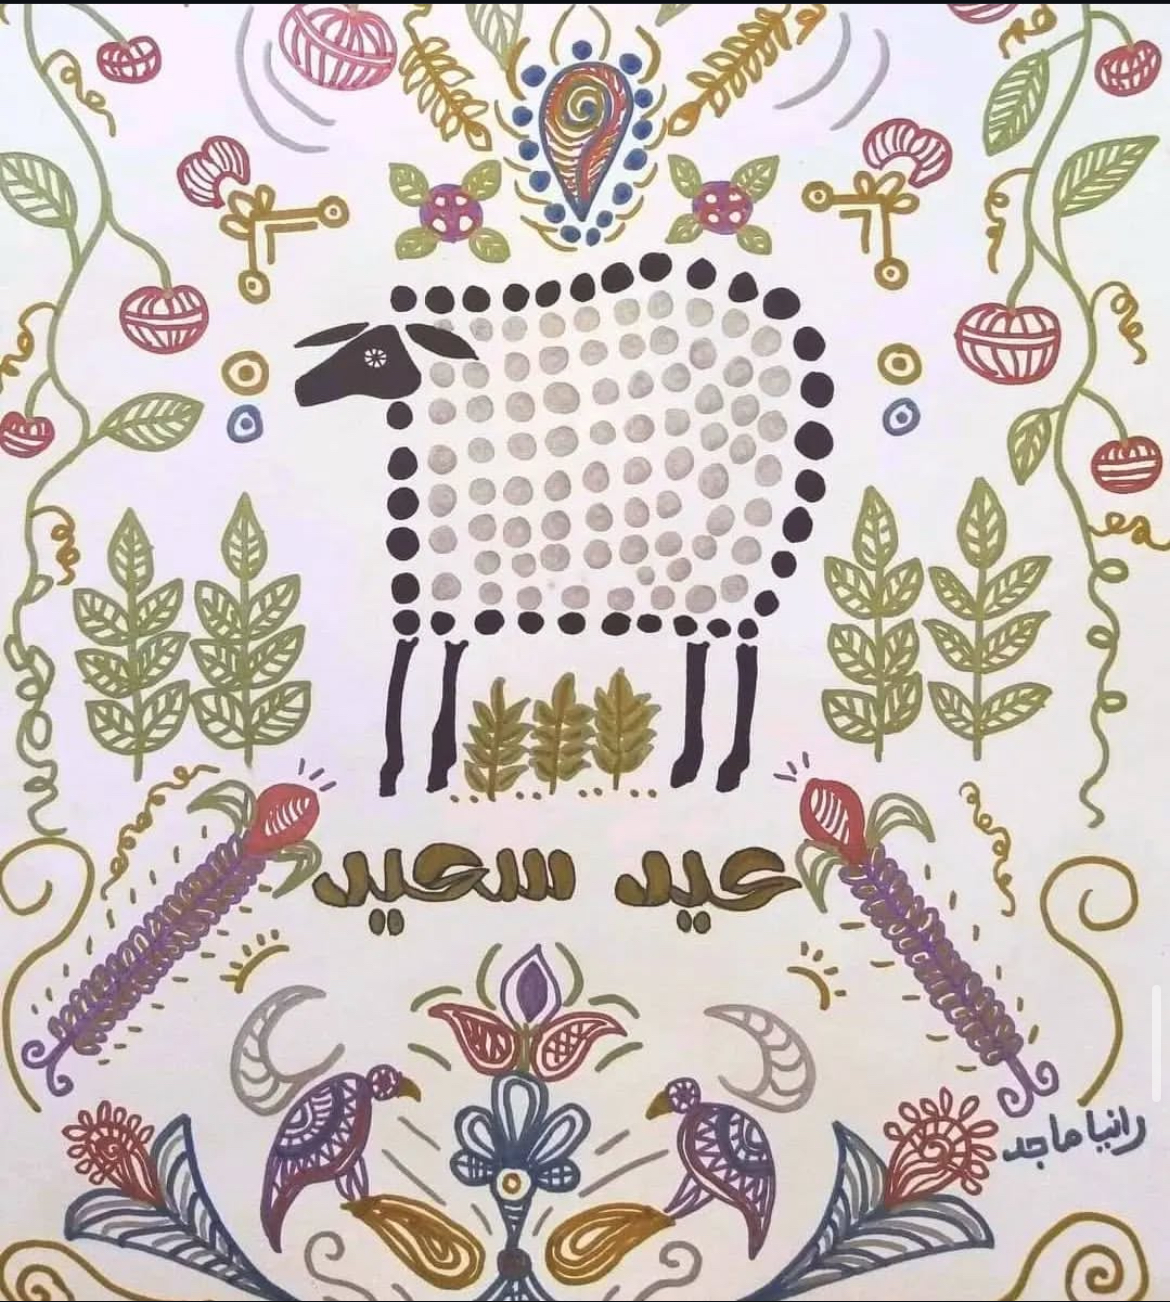 عيد سعيد
رانيا ماجد